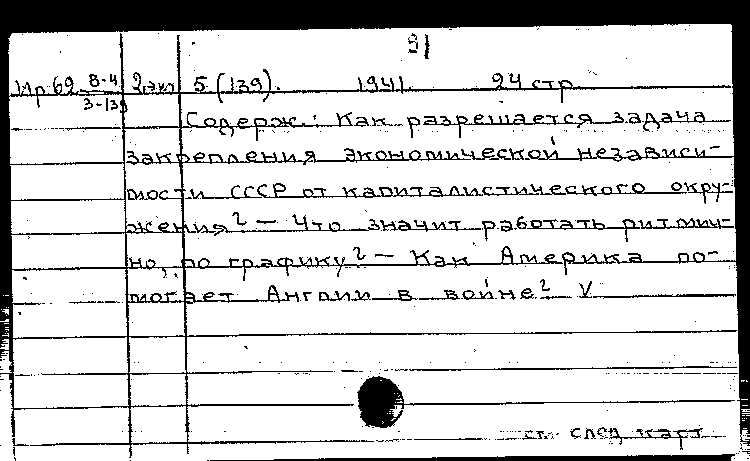 91
Ир 69 8-4/3-139 2 экз 5 (139). 1941. 24 стр
Содерж.: Как разрешается задача
закрепления экономической независи-
мости СССР от капиталистического окру-
жения? — Что значит работать ритмич-
но, по графику? — Как Америка по-
могает Англии в войне? V
см. след карт